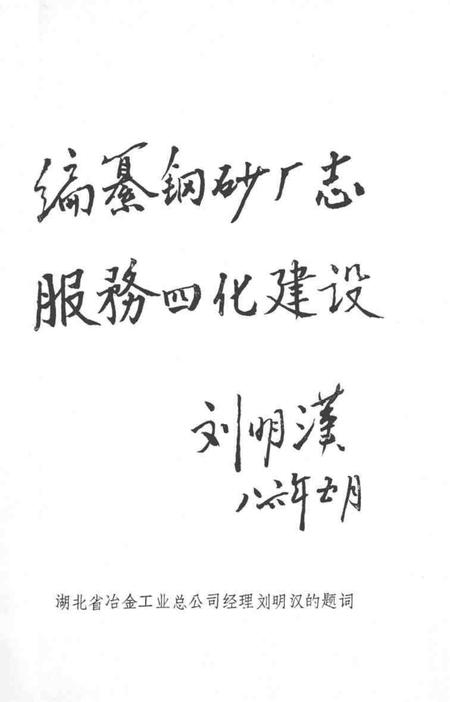 编纂钢砂厂志
服務四化建设
刘明漢
八六年五月
湖北省冶金工业总公司经理刘明汉的题词